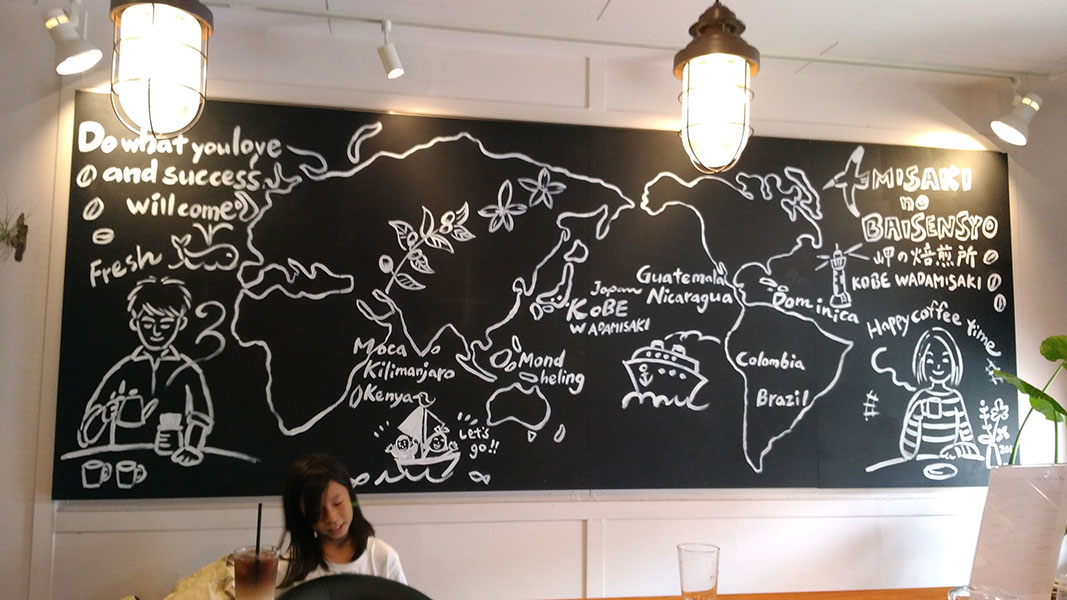 Do what you love
and success
will come
Fresh
Moca
Kilimanjaro
Kenya
Let's
go!!
Mond
heling
Japan
KOBE
WADAMISAKI
Guatemala
Nicaragua
Dominica
Colombia
Brazil
MISAKI
no
BAISENSYO
岬の焙煎所
KOBE WADAMISAKI
Happy coffee time